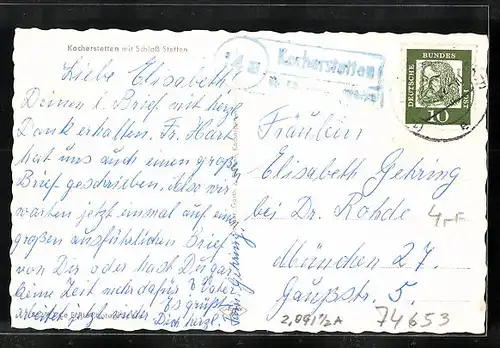 Kocherstetten mit Schloß Stetten
14 a
Kocherstetten
DEUTSCHE BUNDESPOST
10
Liebe Elisabeth!
Deinen l. Brief mit herzl.
Dank erhalten. Fr. Hart
hat uns auch einen groß
Brief geschrieben. Also wir
warten jetzt einmal auf ein
großen ausführlichen Brief
von Dir oder hast Du gar
keine Zeit mehr dafür? Vater
arbeitet sich wieder. Es grüßt
Dich herzl.
Fam. Gehring.
Fräulein
Elisabeth Gehring
bei Dr. Rohde
München 27.
Gaußstr. 5.
74653